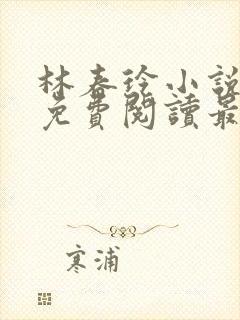 林春徐小說
免費閱讀最
寒浦